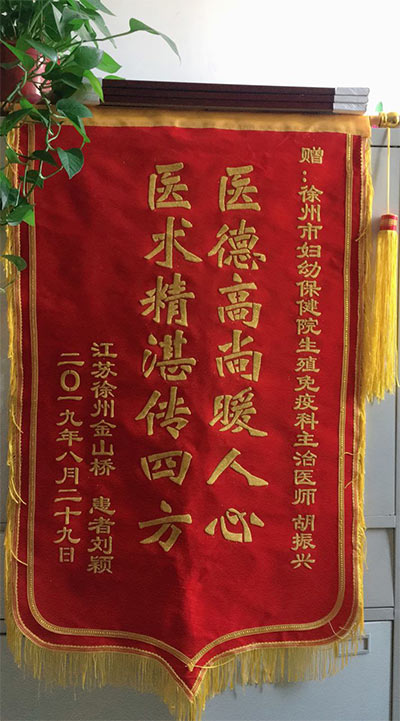 赠：徐州市妇幼保健院生殖免疫科主治医师 胡振兴
医德高尚暖人心
医术精湛传四方
江苏徐州金山桥 患者刘颖
二〇一九年八月二十九日